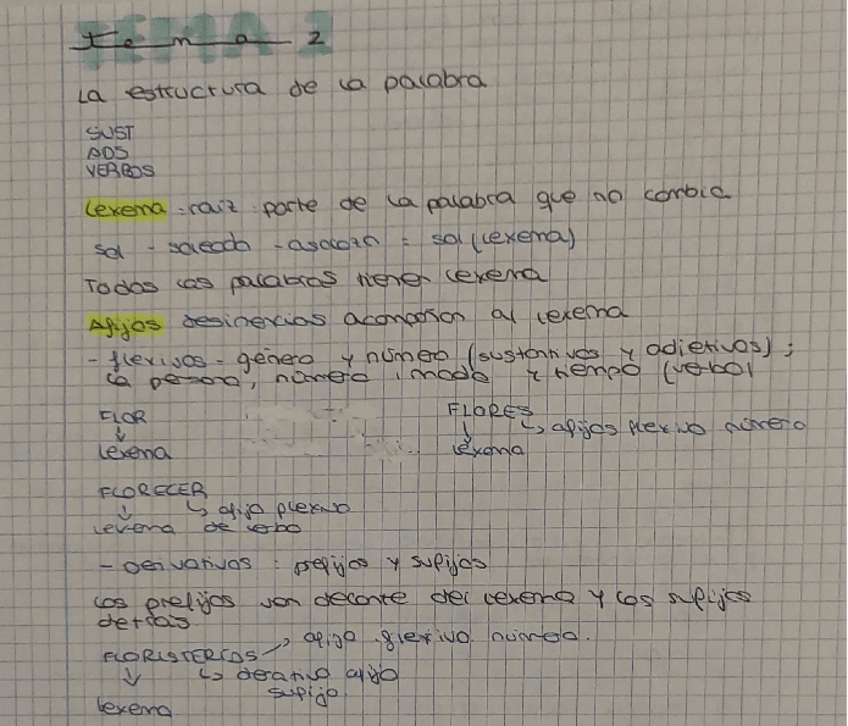 Tema 2
La estructura de la palabra
SUST
ADJ
VERBOS
Lexema: raíz parte de la palabra que no cambia
sol - soleado - = sol (lexema)
Todas las palabras tienen lexema
Afijos desinencias acompañan al lexema
- flexivos = género y número (sustantivos y adjetivos);
la persona, número, modo y tiempo (verbo)
FLOR
↓
lexema
FLORES
↓ ↳ afijos flexivo número
lexema
FLORECER
↓ ↳ afijo flexivo
lexema de verbo
- Derivativos: prefijos y sufijos
Los prefijos van delante del lexema y los sufijos
detrás
FLORISTERÍAS → afijo flexivo número.
↓ ↳ afijo
sufijo
lexema